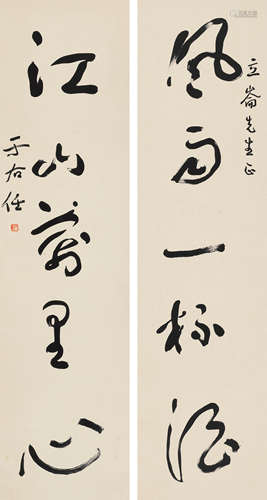 立崙先生正
風雨一杯酒
江山萬里心
于右任